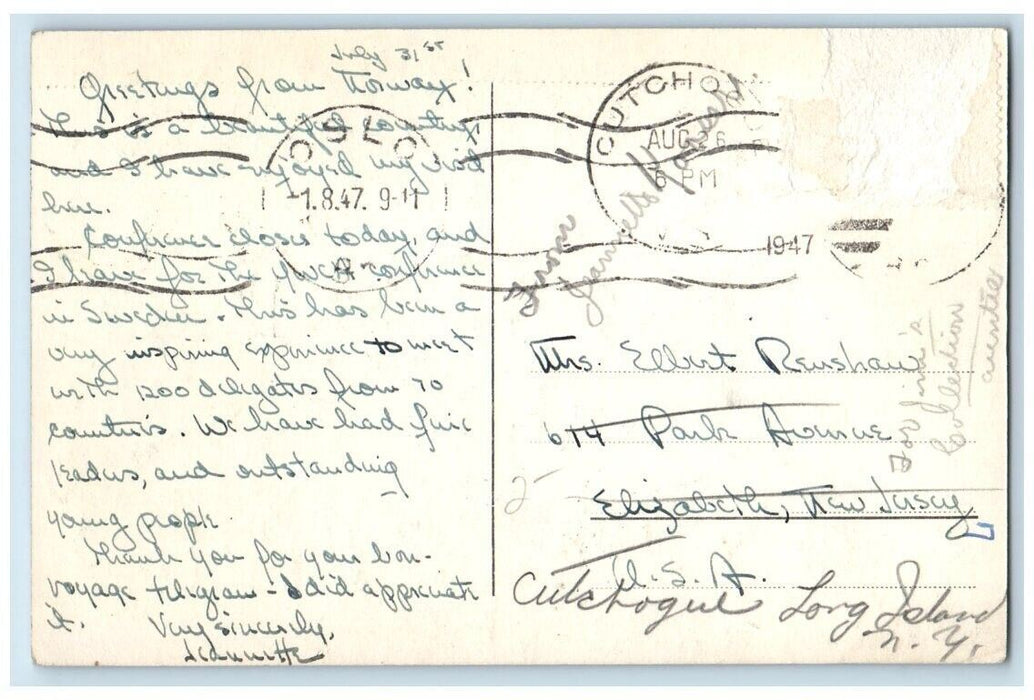 July 31st
Greetings from Norway!
This is a beautiful country,
and I have enjoyed my visit
here.
Conference closes today, and
I leave for the conference
in Sweden. This has been a
very inspiring experience to meet
with 1200 delegates from 70
countries. We have had fine
leaders, and outstanding
young people.
Thank you for your bon-
voyage telegram - I did appreciate
it.
Very sincerely,
Jeannette
OSLO
-1.8.47. 9-11
A
CUTCHOGUE
AUG 26
6 PM
1947
From
Jeannette
Mrs. Elbert Renshaw
614 Park Avenue
Elizabeth, New Jersey
U.S.A.
Cutchogue Long Island
N.Y.
For
Collection
2